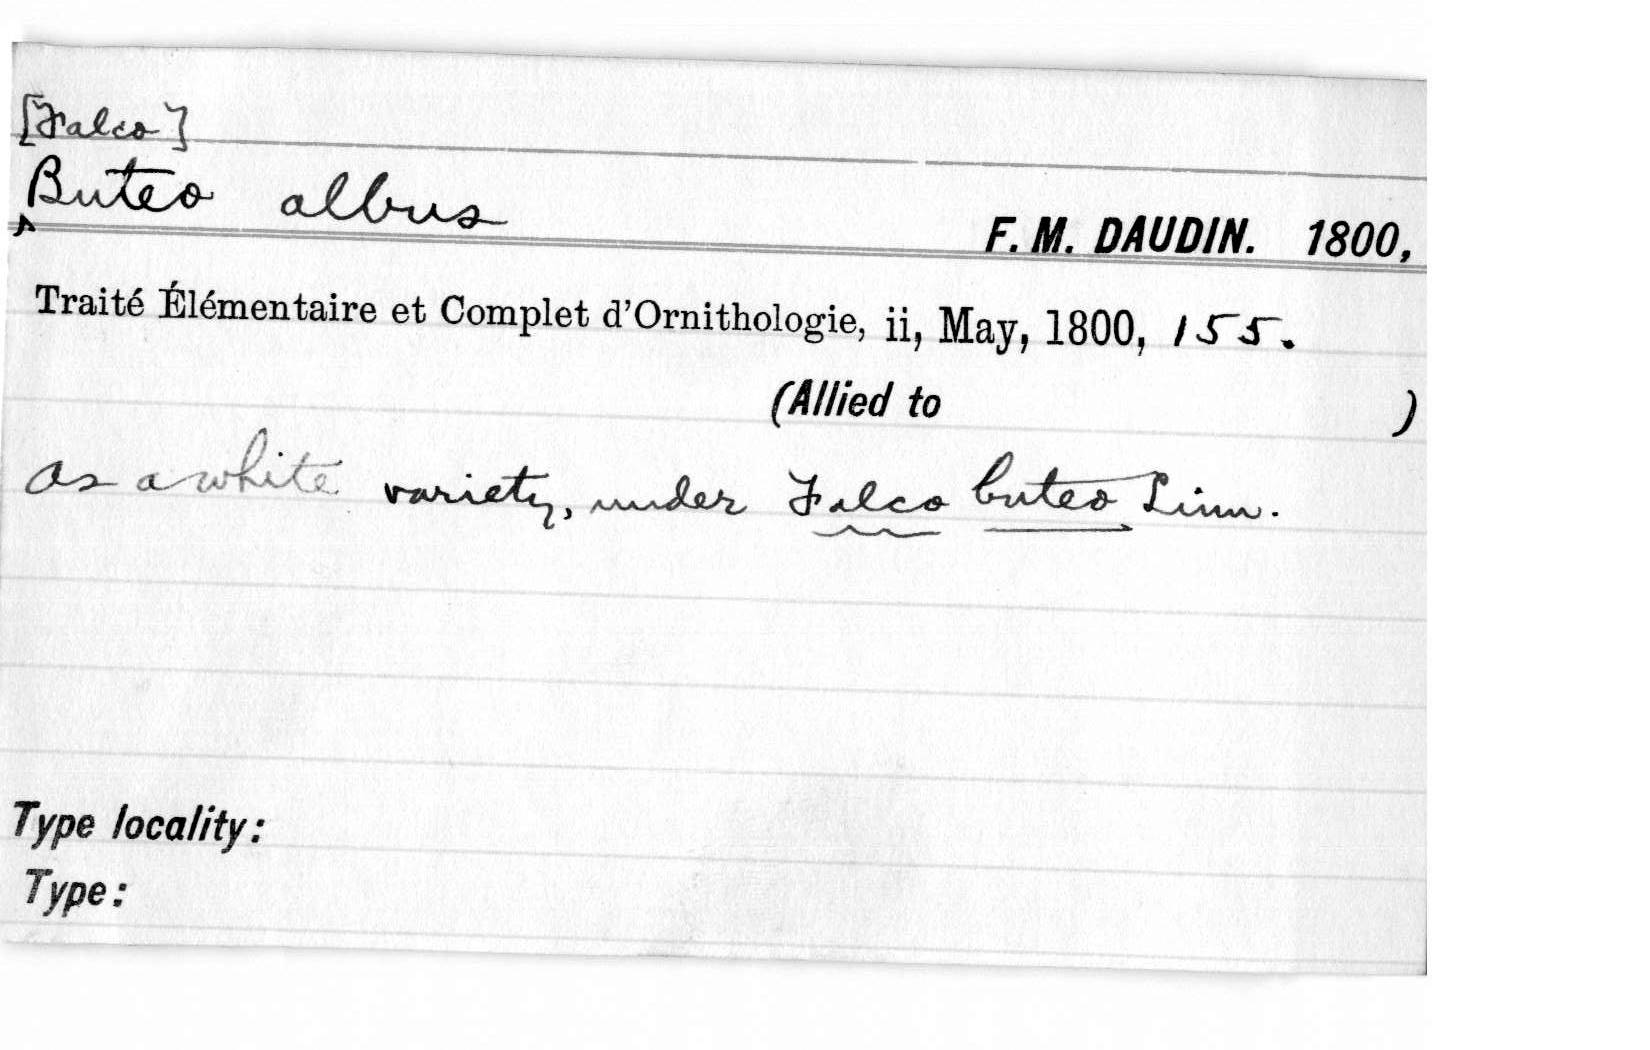 [Falco]
Buteo albus F. M. DAUDIN. 1800,
Traité Élémentaire et Complet d'Ornithologie, ii, May, 1800, 155.
(Allied to )
As a white variety, under Falco buteo Linn.
Type locality:
Type: